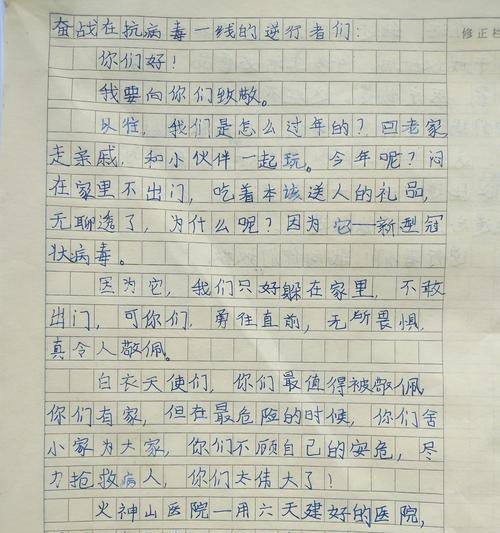 奋战在抗病毒一线的逆行者们:
修正栏
你们好!
我要向你们致敬。
以往,我们是怎么过年的?回老家
走亲戚,和小伙伴一起玩。今年呢?闷
在家里不出门,吃着本该送人的礼品,
无聊透了,为什么呢?因为它——新型冠
状病毒。
因为它,我们只好躲在家里,不敢
出门,可你们,勇往直前,无所畏惧,
真令人敬佩。
白衣天使们,你们最值得被敬佩
你们有家,但在最危险的时候,你们舍
小家为大家,你们不顾自己的安危,尽
力抢救病人,你们太伟大了!
火神山医院—用六天建好的医院,